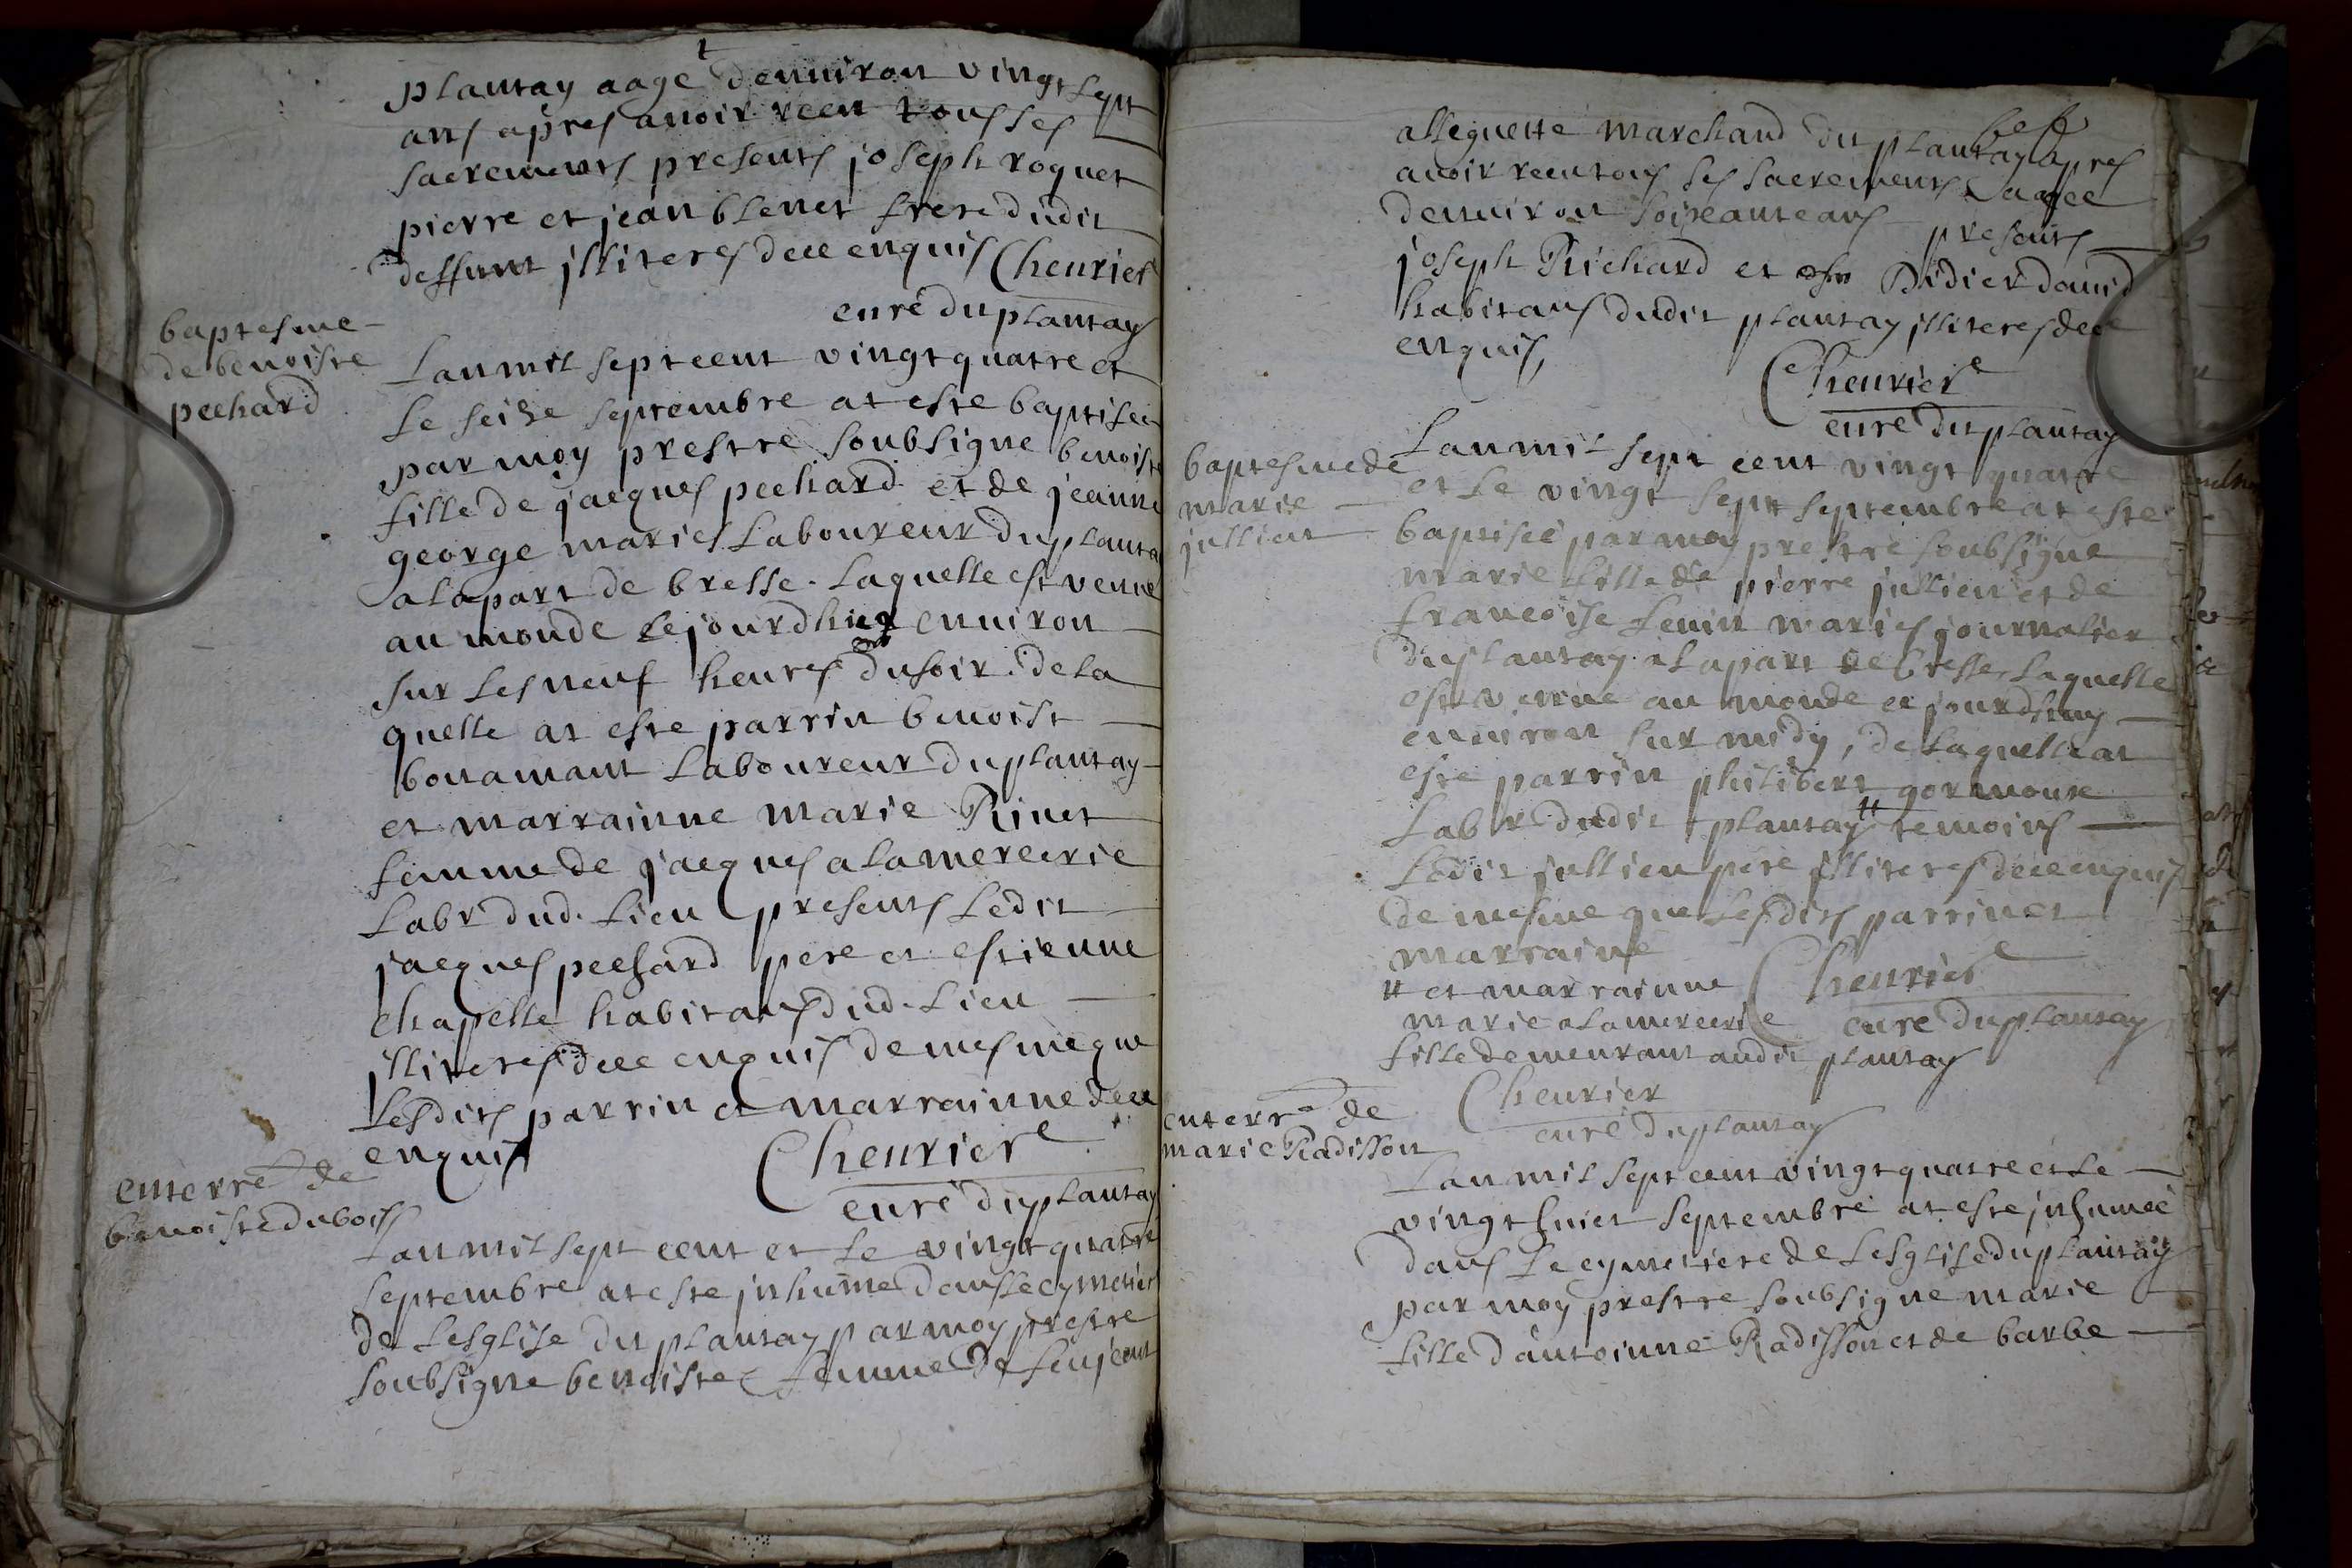 plantay aagé denuiron vingt sept
ans apres auoir receu tous ses
sacrements presents joseph roquet
pierre et jean blenet frere dudit
deffunt jlliteres dece enquis Cheurier
curé du plantay
baptesme
de benoiste
pechard
Lan mil sept cent vingt quatre et
le seize septembre at este baptisee
par moy prestre soubsigne benoiste
fille de jacques pechard et de jeanne
george maries laboureur du planta
a la part de bresse. laquelle est venue
au monde cejourdhuy enuiron
sur les neuf heures du soir. de la
quelle at este parrin benoist
bonamant laboureur du plantay
et marrainne marie Rinet
femme de jacques alamercerie
labr dud. lieu presents ledit
jacques pechard pere et estienne
chapelle habitans dud. lieu
jlliteres dece enquis de mesme que
lesdits parrin et marrainne dece
enquis Cheurier
curé du plantay
enterre de
benoiste dubois
Lan mil sept cent et le vingt quatre
septembre at este jnhumé dans le cymetier
de lesglise du plantay par moy prestre
soubsigne benoiste femme de feu jean
alleguette marchand du plantay apres
auoir receu tous ses sacrements aagee
denuiron soixante ans presents
joseph Richard et Didier dauid
habitans dudit plantay jlliteres dece
enquis,
Cheurier
curé du plantay
baptesme de
marie
jullien
Lan mil sept cent vingt quatre
et le vingt sept septembre at este
baptisée par moy prestre soubsigne
marie fille de pierre jullien et de
francoise feuin maries journalier
du plantay a la part de bresse, laquelle
est venue au monde ce jourdhuy
enuiron sur midy, de laquelle at
este parrin philibert gormoux
labr dudit plantay # temoins
ledit jullien pere jlliteres dece enquis
de mesme que lesdits parrin et
marraine
# et marrainne Cheurier
marie alamercerie curé du plantay
fille demeurant audit plantay
Cheurier
curé du plantay
enterre de
marie Radisson
Lan mil sept cent vingt quatre et le
vingt huict septembre at este jnhumeé
dans le cymetiere de lesglise du plantay
par moy prestre soubsigne marie
fille dantoinne Radisson et de barbe